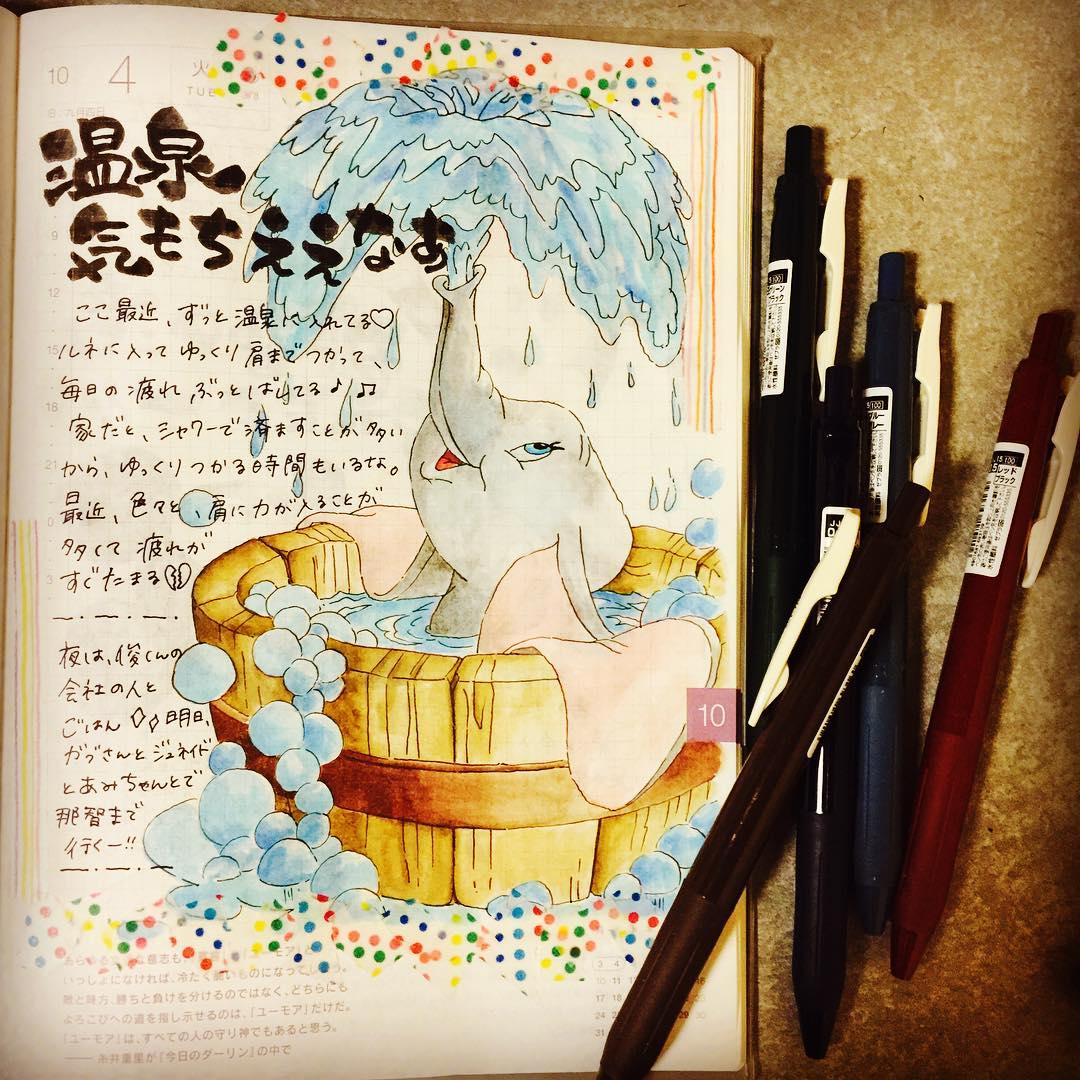 10 4 火
TUE
温泉
気もちええなあ
ここ最近、ずっと温泉に入れてる♡
ルネに入ってゆっくり肩までつかって、
毎日の疲れぶっとばしてる♪♫
家だと、シャワーで済ますことが多い
から、ゆっくりつかる時間もいるな。
最近、色々と、肩に力が入ることが
多くて疲れが
すぐたまる
夜は、俊くんの
会社の人と
ごはん 明日、
ガヴさんとジュネイド
とあみちゃんとで
那智まで
行くー!!
9
12
15
18
21
0
3
10
いっしょになければ、冷たく
敵と味方、勝ちと負けを分けるのではなく、どちらにも
よろこびへの道を指し示せるのは、「ユーモア」だけだ。
「ユーモア」は、すべての人の守り神でもあると思う。
—— 糸井重里が『今日のダーリン』の中で
3 4
10 11
17 18
24 25
31
29 30
グリーン
ブラック
ブルー
グレー
レッド
ブラック